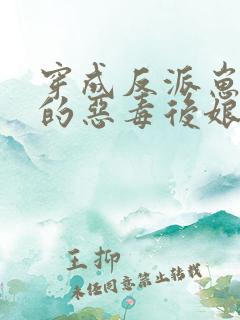 穿成反派崽
的惡毒後娘
王抑
未任同意禁止转载